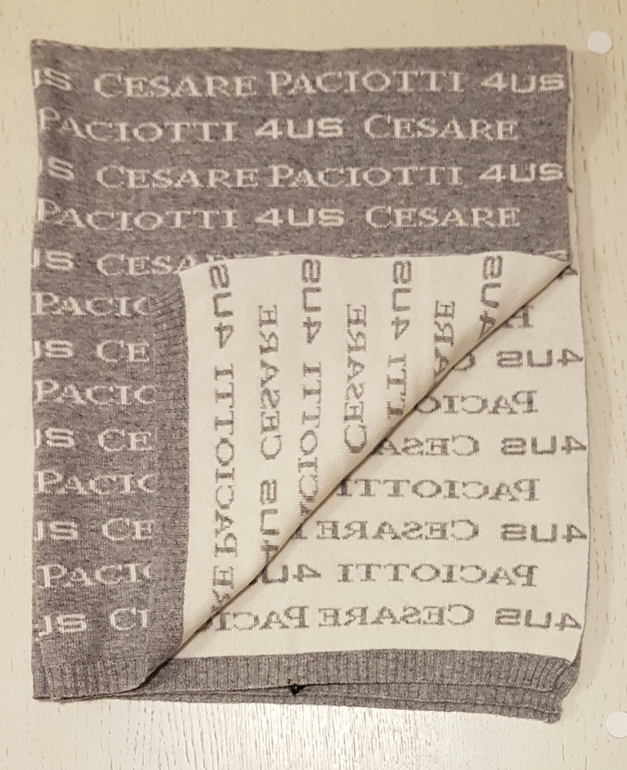 US CESARE PACIOTTI 4US
PACIOTTI 4US CESARE
US CESARE PACIOTTI 4US
PACIOTTI 4US CESARE
US CESA
PACIO
US CE
PACIO
US CE
PACIO
US CE
PACIO
US CE
4US PACIOTTI
CESARE 4US
4US PACIOTTI
CESARE
4US
4US
4US
PACIO
4US CESARE
PACIOTTI
4US CESARE
PACIOTTI 4US
4US CESARE PACIO